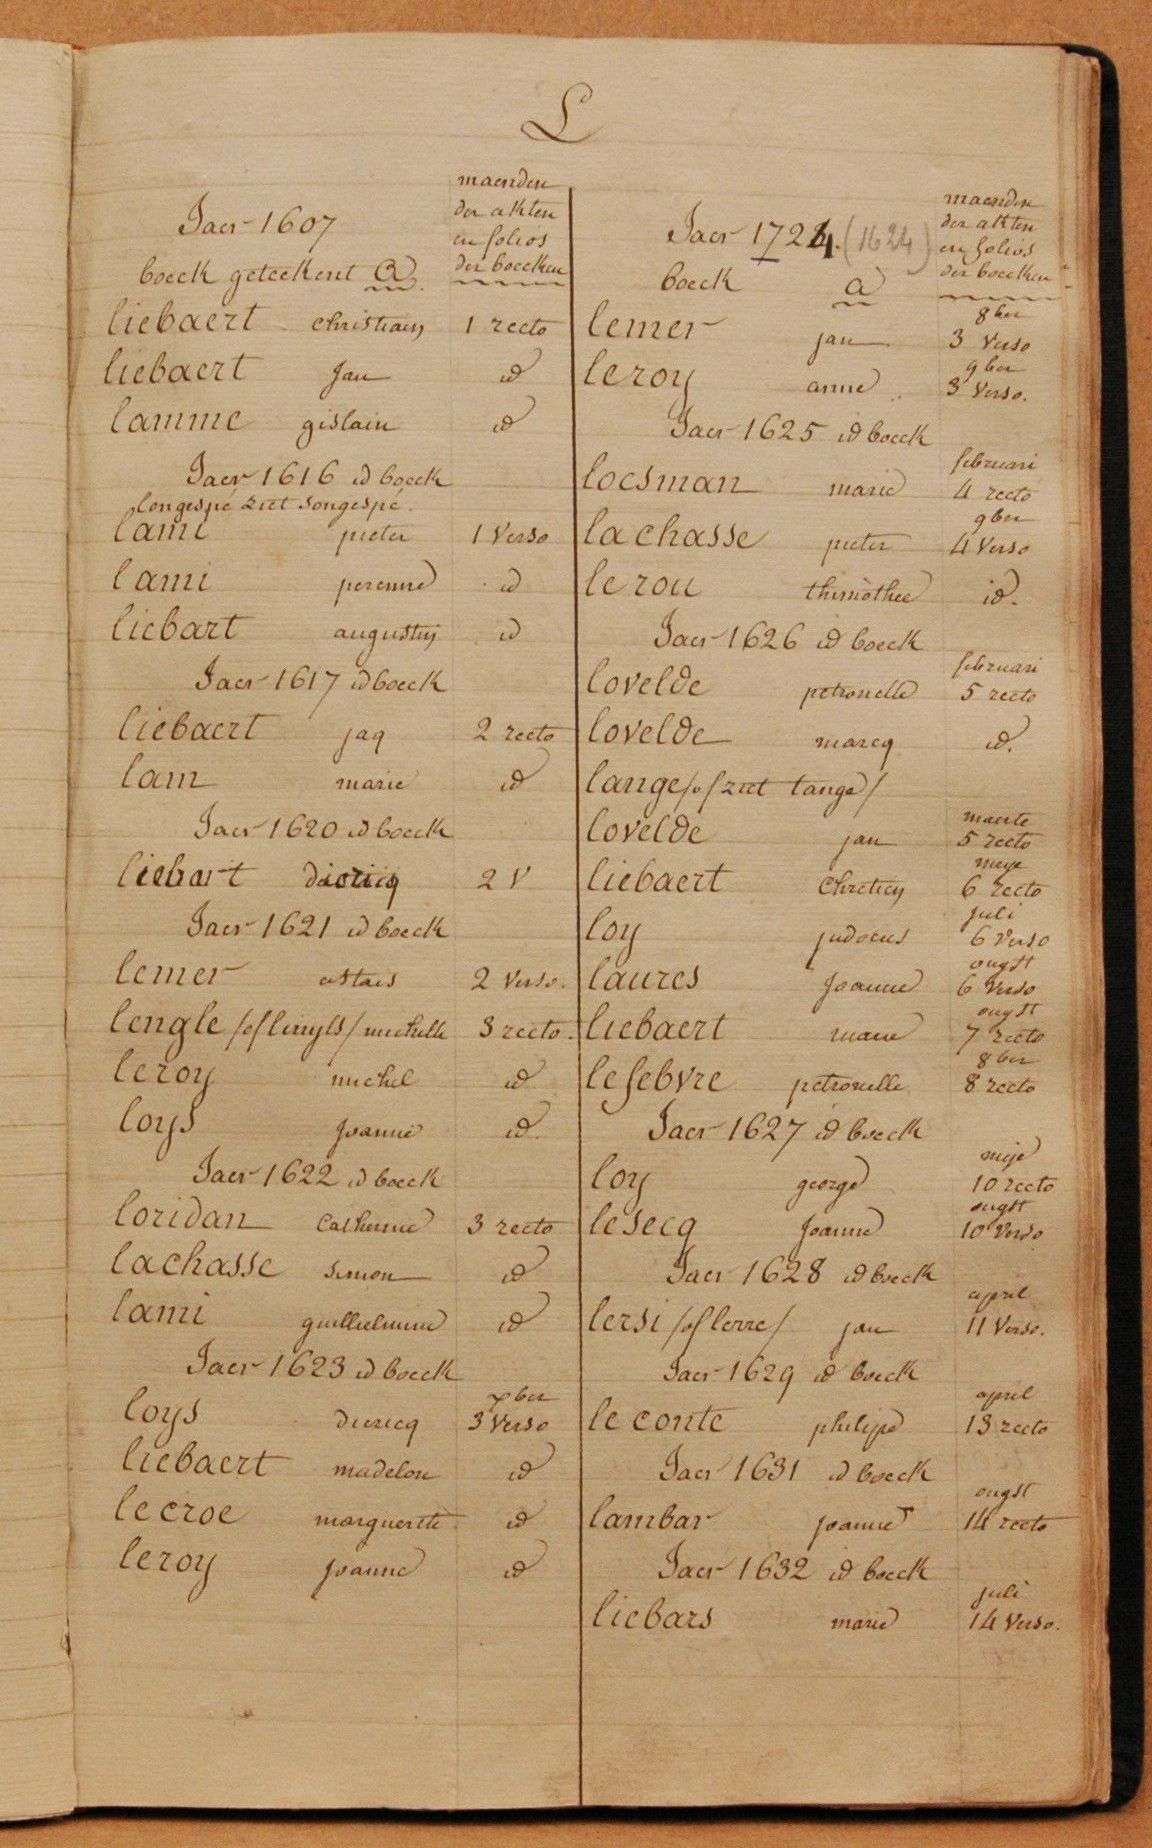 L
maenden
der akten
en folios
der boecken
Jaer 1607
boeck geteekent a
liebaert christiaen 1 recto
liebaert Jan id
lamme gislain id
Jaer 1616 id boeck
longespé ziet songespé.
lami pieter 1 Verso
lami perenne id
liebart augustin id
Jaer 1617 id boeck
liebaert jaq 2 recto
lam marie id
Jaer 1620 id boeck
liebart diericq 2 V
Jaer 1621 id boeck
lemer 2 Verso.
lengle /of lingls/ michelle 3 recto.
leroy michel id
loys Joanne id.
Jaer 1622 id boeck
loridan Catherine 3 recto
lachasse simon id
lami guillielmine id
Jaer 1623 id boeck
xber
loys diericq 3 Verso
liebaert madelon id
lecroe marguerite id
leroy Joanne id
maenden
der akten
en folios
der boecken
Jaer 1724. (1624)
boeck a
8ber
lemer jan 3 Verso
9ber
leroy anne 3 Verso.
Jaer 1625 id boeck
februari
locsman marie 4 recto
9ber
lachasse pieter 4 Verso
lerou thimothee id.
Jaer 1626 id boeck
februari
lovelde petronelle 5 recto
lovelde marcq id.
lange /of ziet tange/
maerte
lovelde jan 5 recto
meye
liebaert Chretien 6 recto
juli
loy judocus 6 Verso
ougst
laures Joanne 6 Verso
ougst
liebaert marie 7 recto
8ber
lefebvre petronelle 8 recto
Jaer 1627 id boeck
meje
loy george 10 recto
ougst
lesecq Joanne 10 Verso
Jaer 1628 id boeck
april
lersi /of lerre/ jan 11 Verso.
Jaer 1629 id boeck
april
leconte philipe 13 recto
Jaer 1631 id boeck
ougst
lambar joanne 14 recto
Jaer 1632 id boeck
juli
liebars marie 14 Verso.